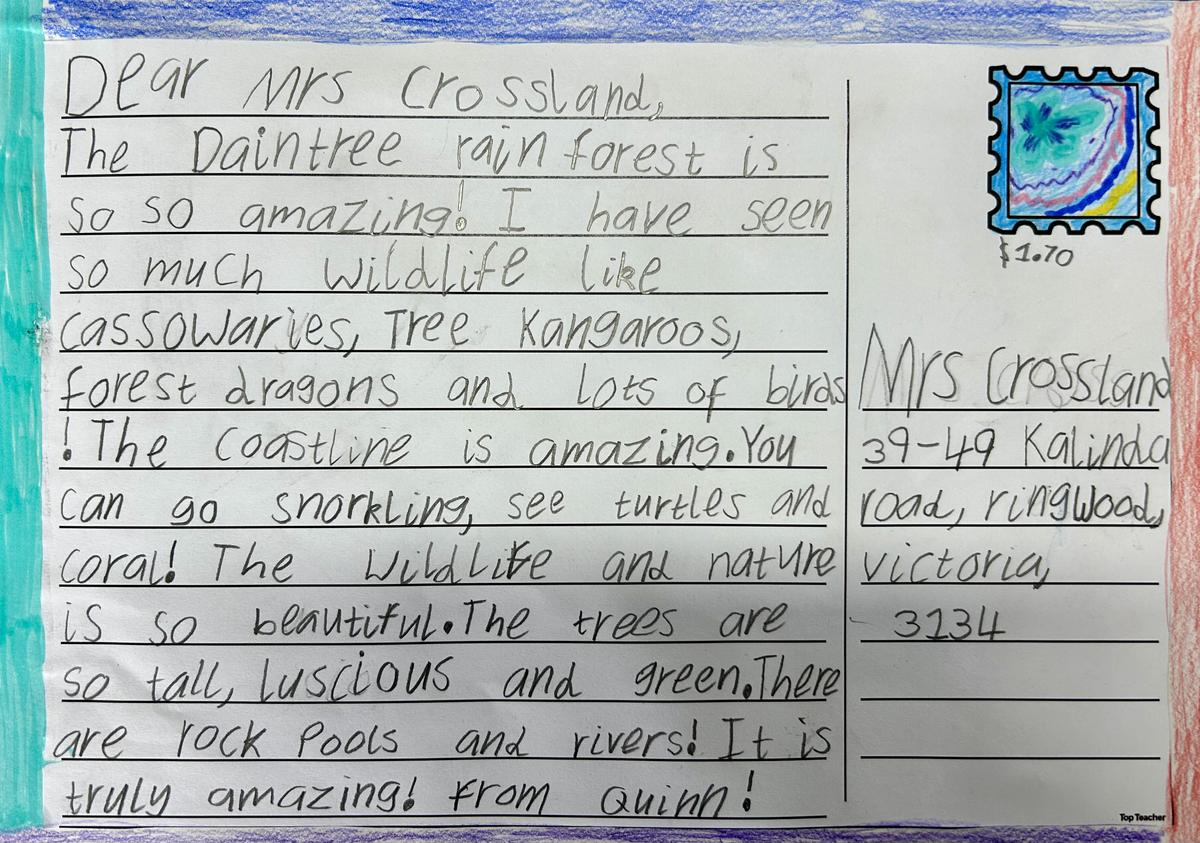 Dear Mrs Crossland,
The Daintree rain forest is
so so amazing! I have seen
so much wildlife like
cassowaries, Tree Kangaroos,
forest dragons and lots of birds
! The coastline is amazing. You
can go snorkling, see turtles and
coral! The wildlife and nature
is so beautiful. The trees are
so tall, luscious and green. There
are rock Pools and rivers! It is
truly amazing! From Quinn!
$1.70
Mrs Crossland
39-49 Kalinda
road, ringwood,
victoria,
3134
Top Teacher